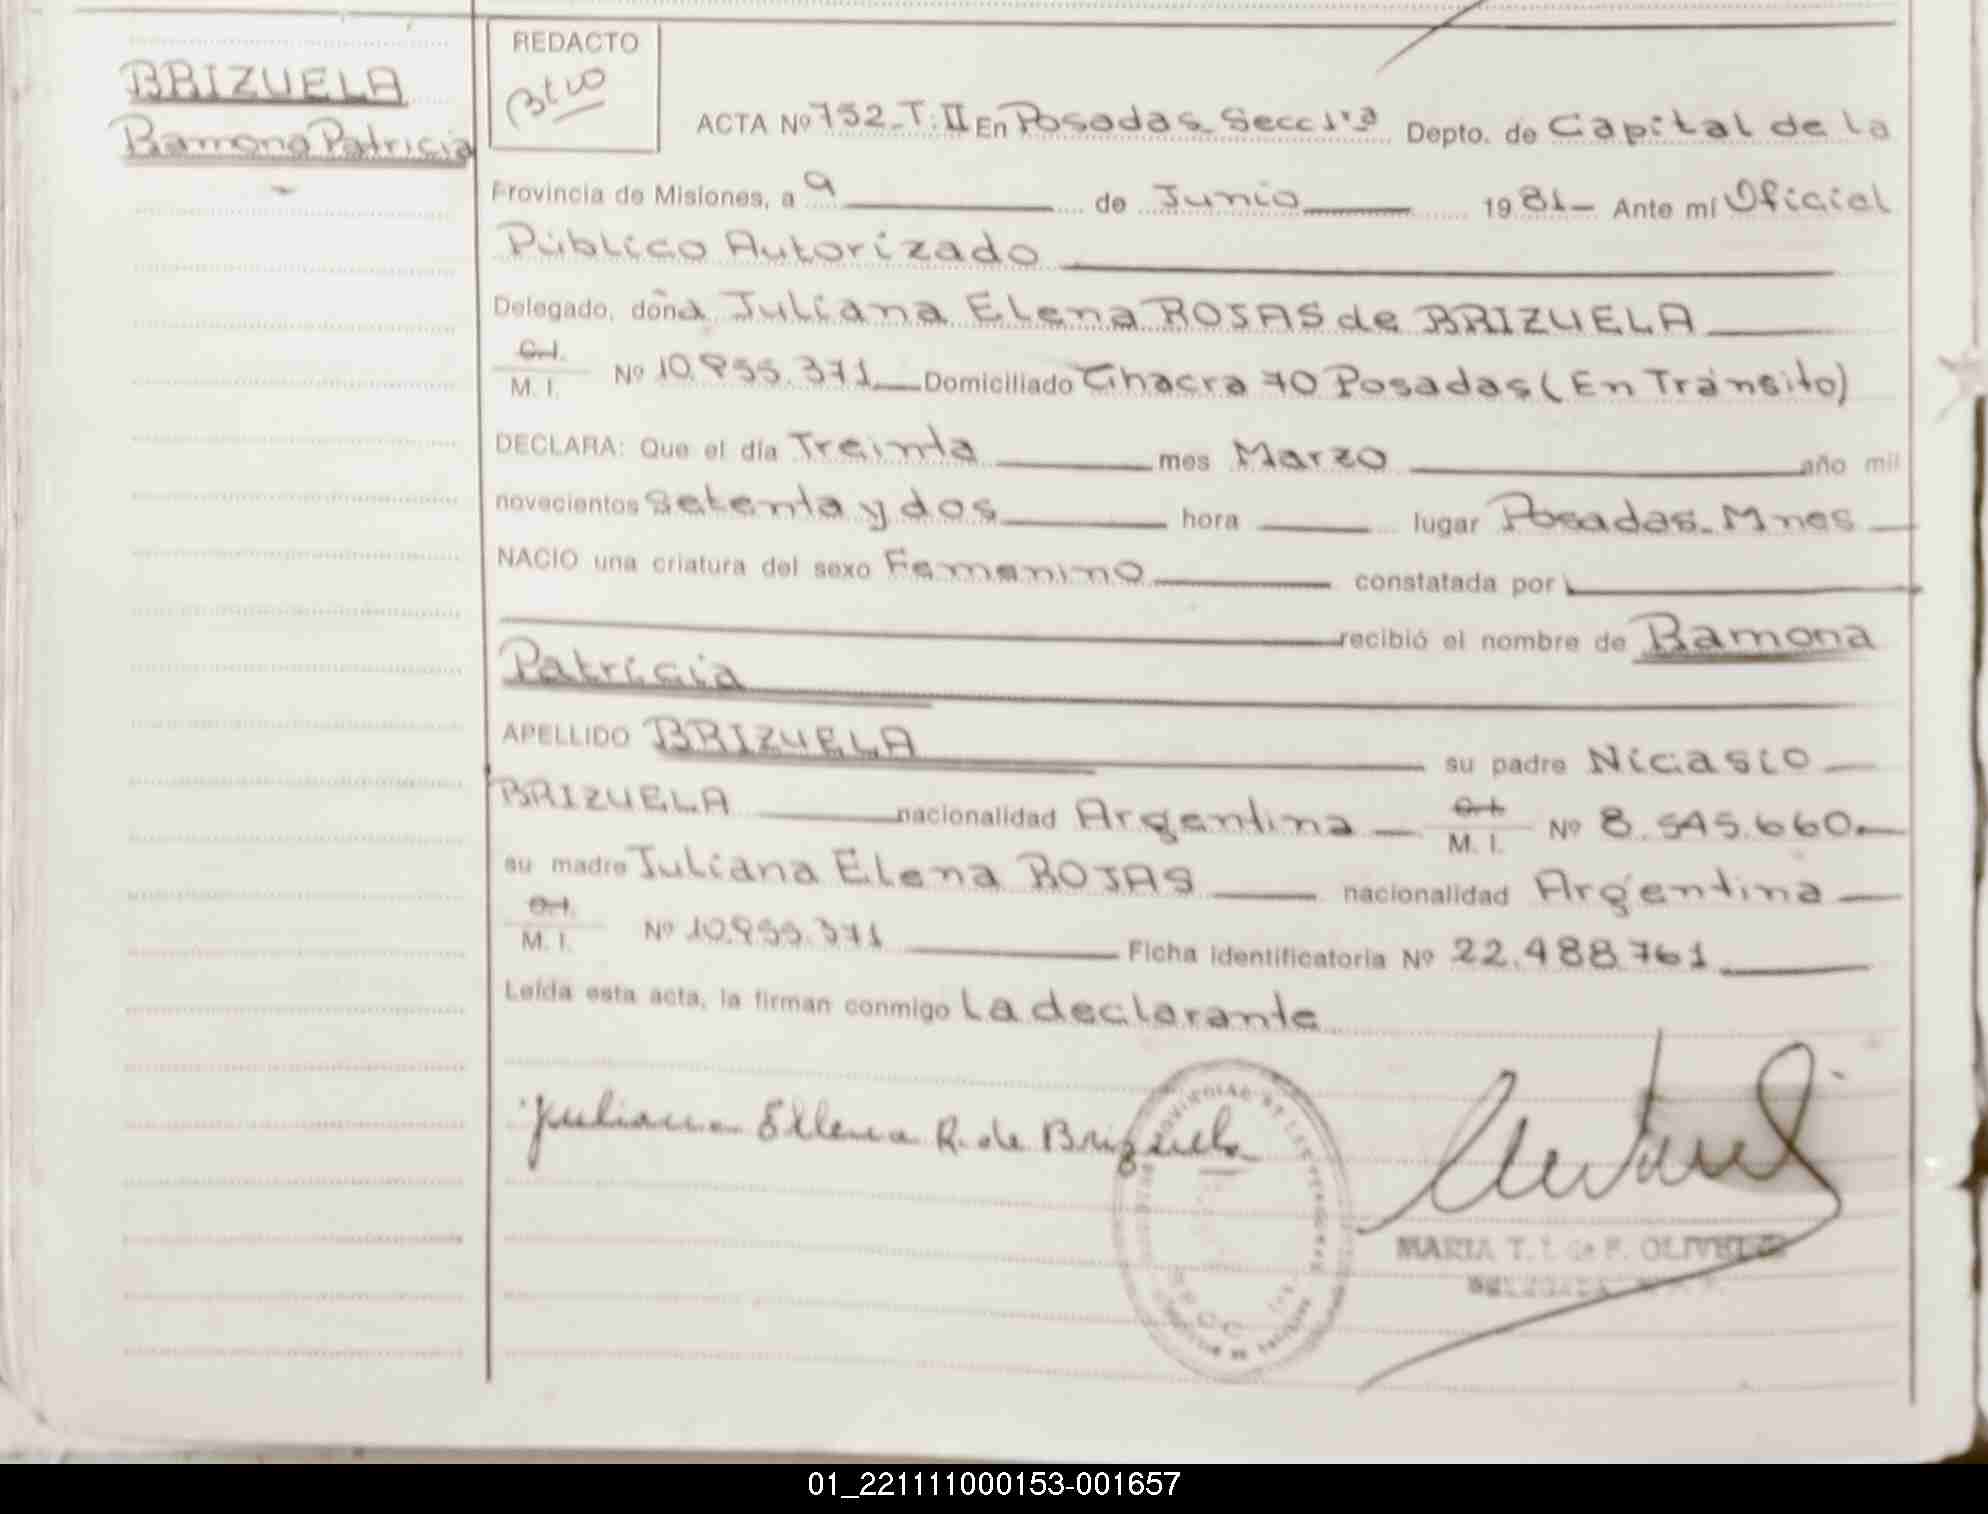 BRIZUELA
Ramona Patricia
REDACTO
ACTA Nº 752-T:II En Posadas Secc 1ra Depto. de Capital de la
Provincia de Misiones, a 9 de Junio 1981- Ante mí Oficial
Público Autorizado
Delegado, doña Juliana Elena ROJAS de BRIZUELA
C.I.
M. I. Nº 10.955.371 Domiciliado Chacra 70 Posadas (En Tránsito)
DECLARA: Que el día Treinta mes Marzo año mil
novecientos setenta y dos hora lugar Posadas-Mnes
NACIO una criatura del sexo Femenino constatada por
recibió el nombre de Ramona
Patricia
APELLIDO BRIZUELA su padre Nicasio
BRIZUELA nacionalidad Argentina C.I. M. I. Nº 8.545.660
su madre Juliana Elena ROJAS nacionalidad Argentina
C.I.
M. I. Nº 10.955.371 Ficha identificatoria Nº 22.488.761
Leída esta acta, la firman conmigo La declarante
Juliana Ellena R. de Brizuela
MARIA T. de F.
DELEGADA
01_221111000153-001657